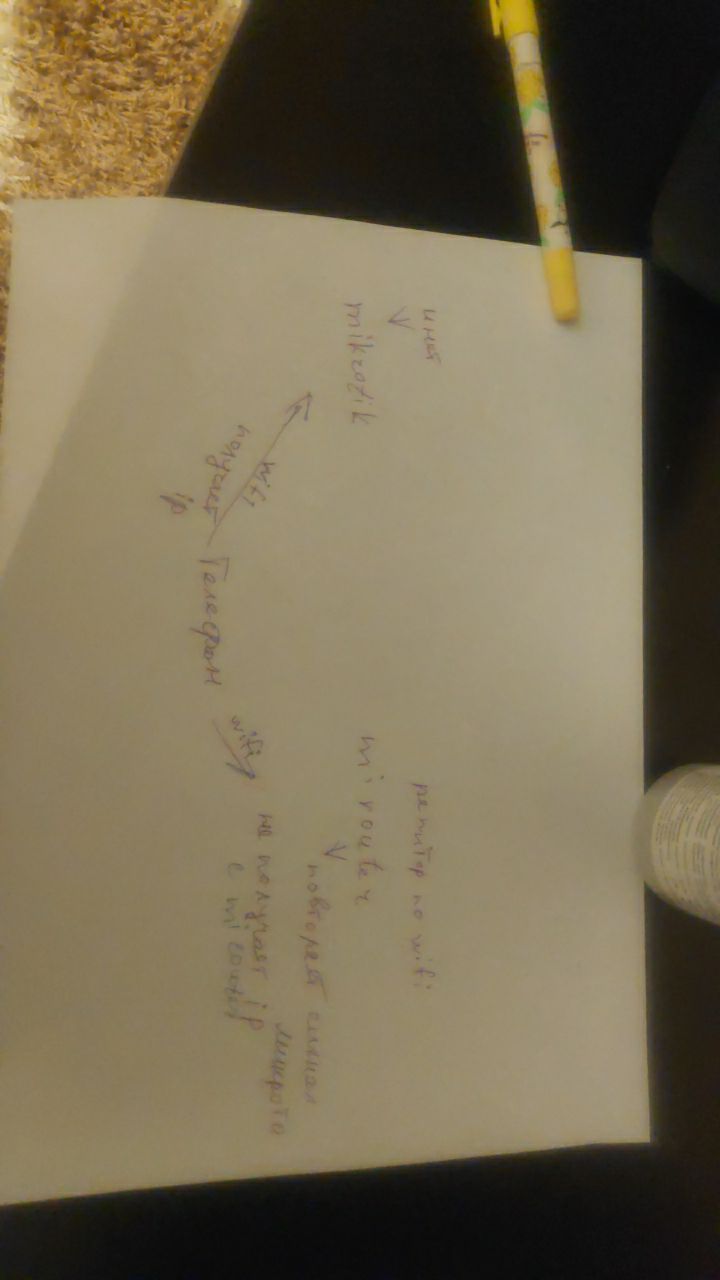 инет
mikrotik
wifi
получает
ip
Телефон
репитор по wifi
mi router
повторяет сигнал
микрото
wifi
не получает ip
с mi router